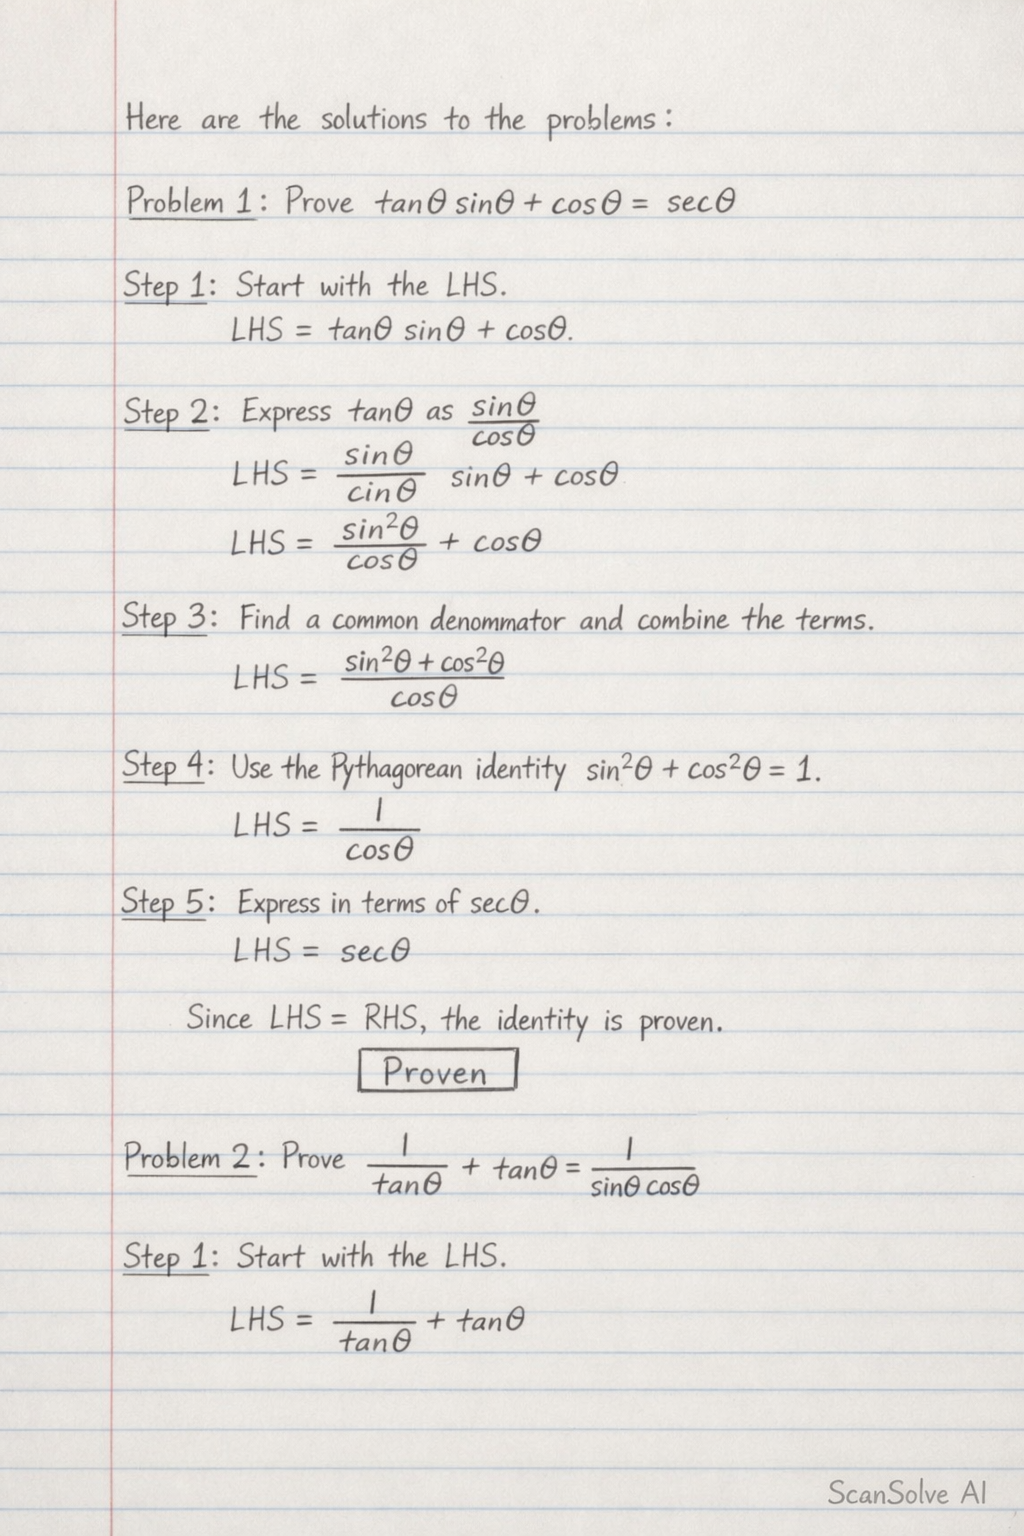 Here are the solutions to the problems:
Problem 1: Prove tanθ sinθ + cosθ = secθ
Step 1: Start with the LHS.
LHS = tanθ sinθ + cosθ.
Step 2: Express tanθ as sinθ/cosθ
LHS = sinθ/cinθ sinθ + cosθ
LHS = sin²θ/cosθ + cosθ
Step 3: Find a common denommator and combine the terms.
LHS = sin²θ + cos²θ/cosθ
Step 4: Use the Pythagorean identity sin²θ + cos²θ = 1.
LHS = 1/cosθ
Step 5: Express in terms of secθ.
LHS = secθ
Since LHS = RHS, the identity is proven.
Proven
Problem 2: Prove 1/tanθ + tanθ = 1/sinθ cosθ
Step 1: Start with the LHS.
LHS = 1/tanθ + tanθ
ScanSolve AI